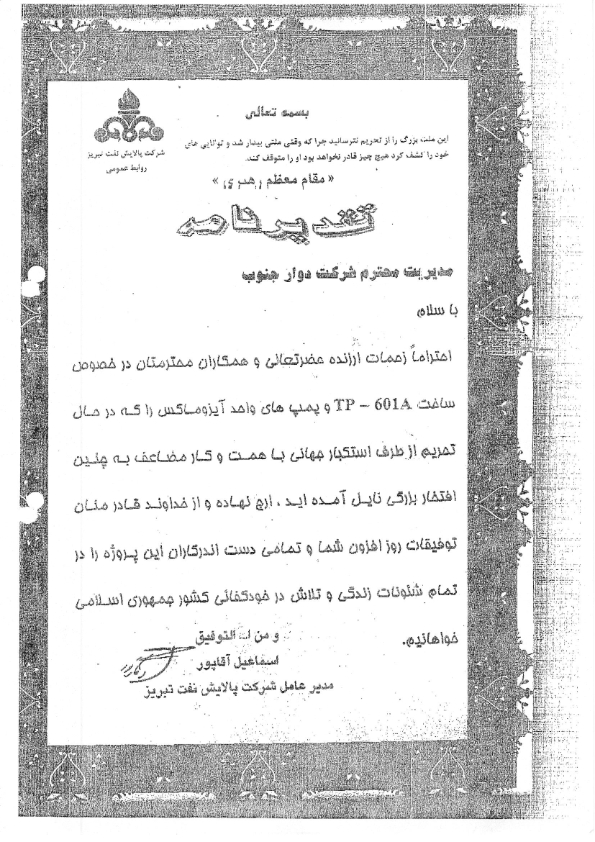 بسمه تعالی
شرکت پالایش نفت تبریز
روابط عمومی
این ملت بزرگ را از تحریم نترسانید چرا که وقتی ملتی بیدار شد و توانایی های
خود را کشف کرد هیچ چیز قادر نخواهد بود او را متوقف کند.
« مقام معظم رهبری »
تقدیرنامه
مدیریت محترم شرکت دوار جنوب
با سلام
احتراماً زحمات ارزنده حضرتعالی و همکاران محترمتان در خصوص
ساخت TP – 601A و پمپ های واحد آیزوماکس را که در حال
تحریم از طرف استکبار جهانی با همت و کار مضاعف به چنین
افتخار بزرگی نایل آمده اید ، ارج نهاده و از خداوند قادر منان
توفیقات روز افزون شما و تمامی دست اندرکاران این پروژه را در
تمام شئونات زندگی و تلاش در خودکفائی کشور جمهوری اسلامی
خواهانیم.
و من ا... التوفیق
اسماعیل آقاپور
مدیر عامل شرکت پالایش نفت تبریز